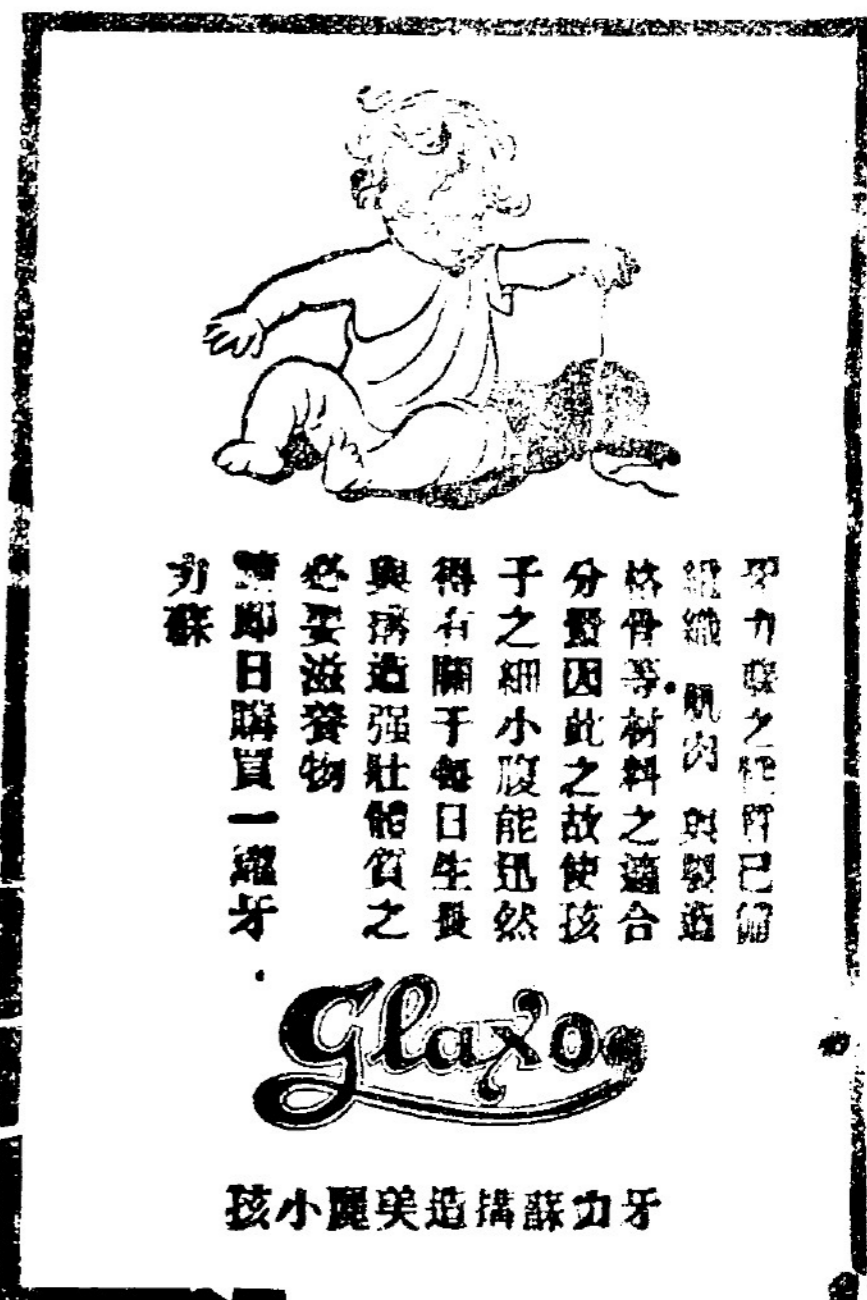 牙力蘇之性質已備
組織 肌肉 與製造
格骨等材料之適合
分量因此之故使孩
子之細小腹能迅然
得有關于每日生長
與構造强壯體質之
必要滋養物
請即日購買一罐牙
力蘇
Glaxo
牙力蘇構造美麗小孩